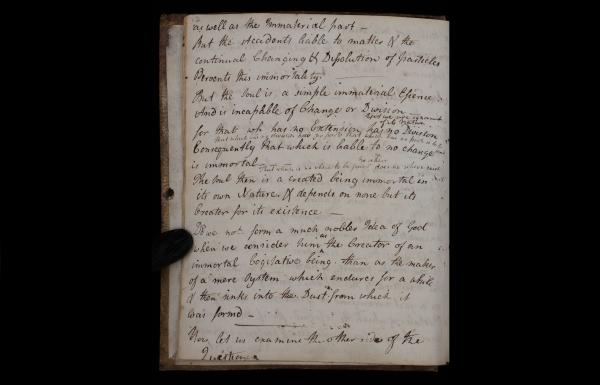 as well as the Immaterial part –
But the Accidents liable to matter & the
continual Changing & Dissolution of Particles
Prevents this immortality
But the Soul is a simple immaterial Essence
And is incapable of Change or Division
for that wh has no Extension has no Division
Consequently that which is liable to no change
is immortal
The Soul then is a created being immortal in
its own Nature & depends on none but its
Creator for its existence –
Do we not form a much nobler Idea of God
when we consider him as the Creator of an
immortal Legislative being than as the maker
of a mere System which endures for a while
& then sinks into the Dust from which it
was formd –
Now let us examine the other side of the
Question